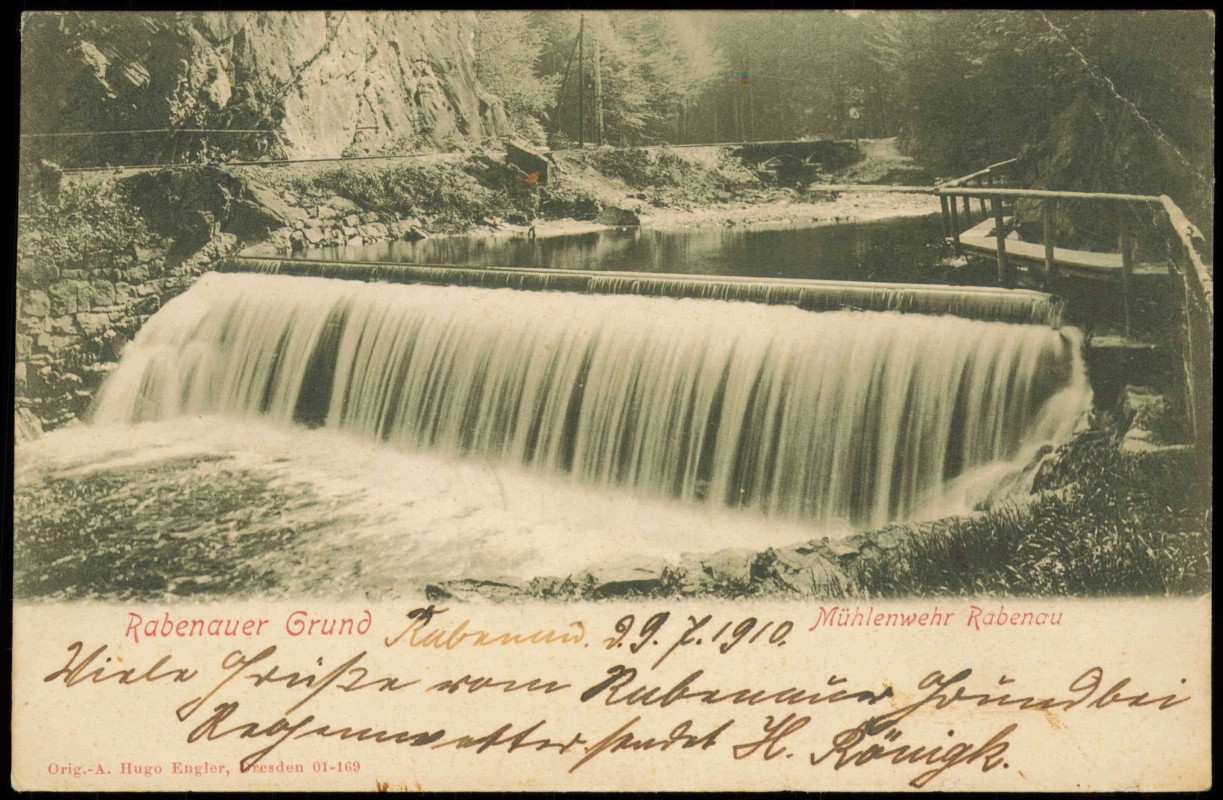 Rabenauer Grund Rabenau. d. 9. 7. 1910. Mühlenwehr Rabenau
Viele Grüße vom Rabenauer Grund bei
Regenwetter sendet H. Königk.
Orig.-A. Hugo Engler, Dresden 01-169